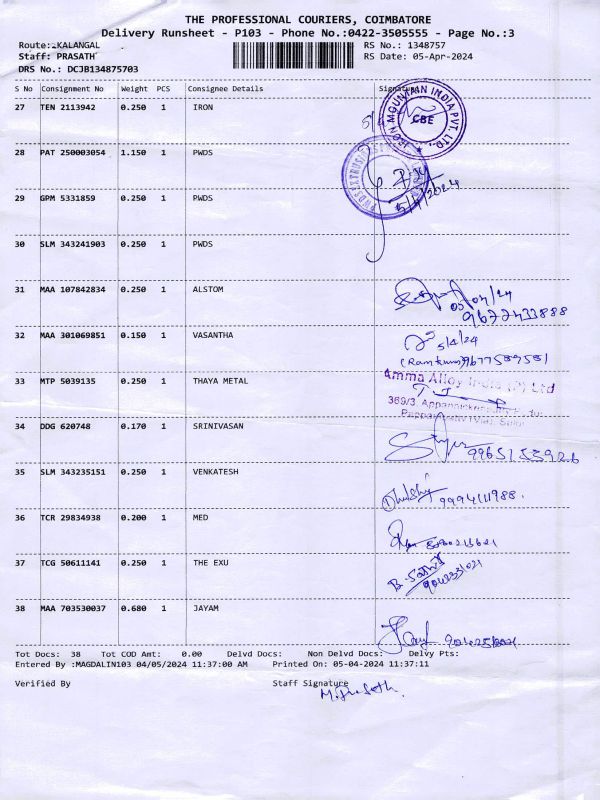 THE PROFESSIONAL COURIERS, COIMBATORE
Delivery Runsheet - P103 - Phone No.:0422-3505555 - Page No.:3
Route:2KALANGAL RS No.: 1348757
Staff: PRASATH RS Date: 05-Apr-2024
DRS No.: DCJB134875703
S No Consignment No Weight PCS Consignee Details Signature
27 TEN 2113942 0.250 1 IRON
IRON MOUNTAIN INDIA PVT. LTD.,
CBE
28 PAT 250003054 1.150 1 PWDS
29 GPM 5331859 0.250 1 PWDS
5/4/2024
30 SLM 343241903 0.250 1 PWDS
31 MAA 107842834 0.250 1 ALSTOM
05/04/24
9677433888
32 MAA 301069851 0.150 1 VASANTHA
5/4/24
(Ramkumar)9677589581
33 MTP 5039135 0.250 1 THAYA METAL
Amma Alloy India (P) Ltd
369/3,
34 DDG 620748 0.170 1 SRINIVASAN
9965153926
35 SLM 343235151 0.250 1 VENKATESH
9994111988.
36 TCR 29834938 0.200 1 MED
37 TCG 50611141 0.250 1 THE EXU
38 MAA 703530037 0.680 1 JAYAM
Tot Docs: 38 Tot COD Amt: 0.00 Delvd Docs: Non Delvd Docs: Delvy Pts:
Entered By :MAGDALIN103 04/05/2024 11:37:00 AM Printed On: 05-04-2024 11:37:11
Verified By Staff Signature
M.Prasath.